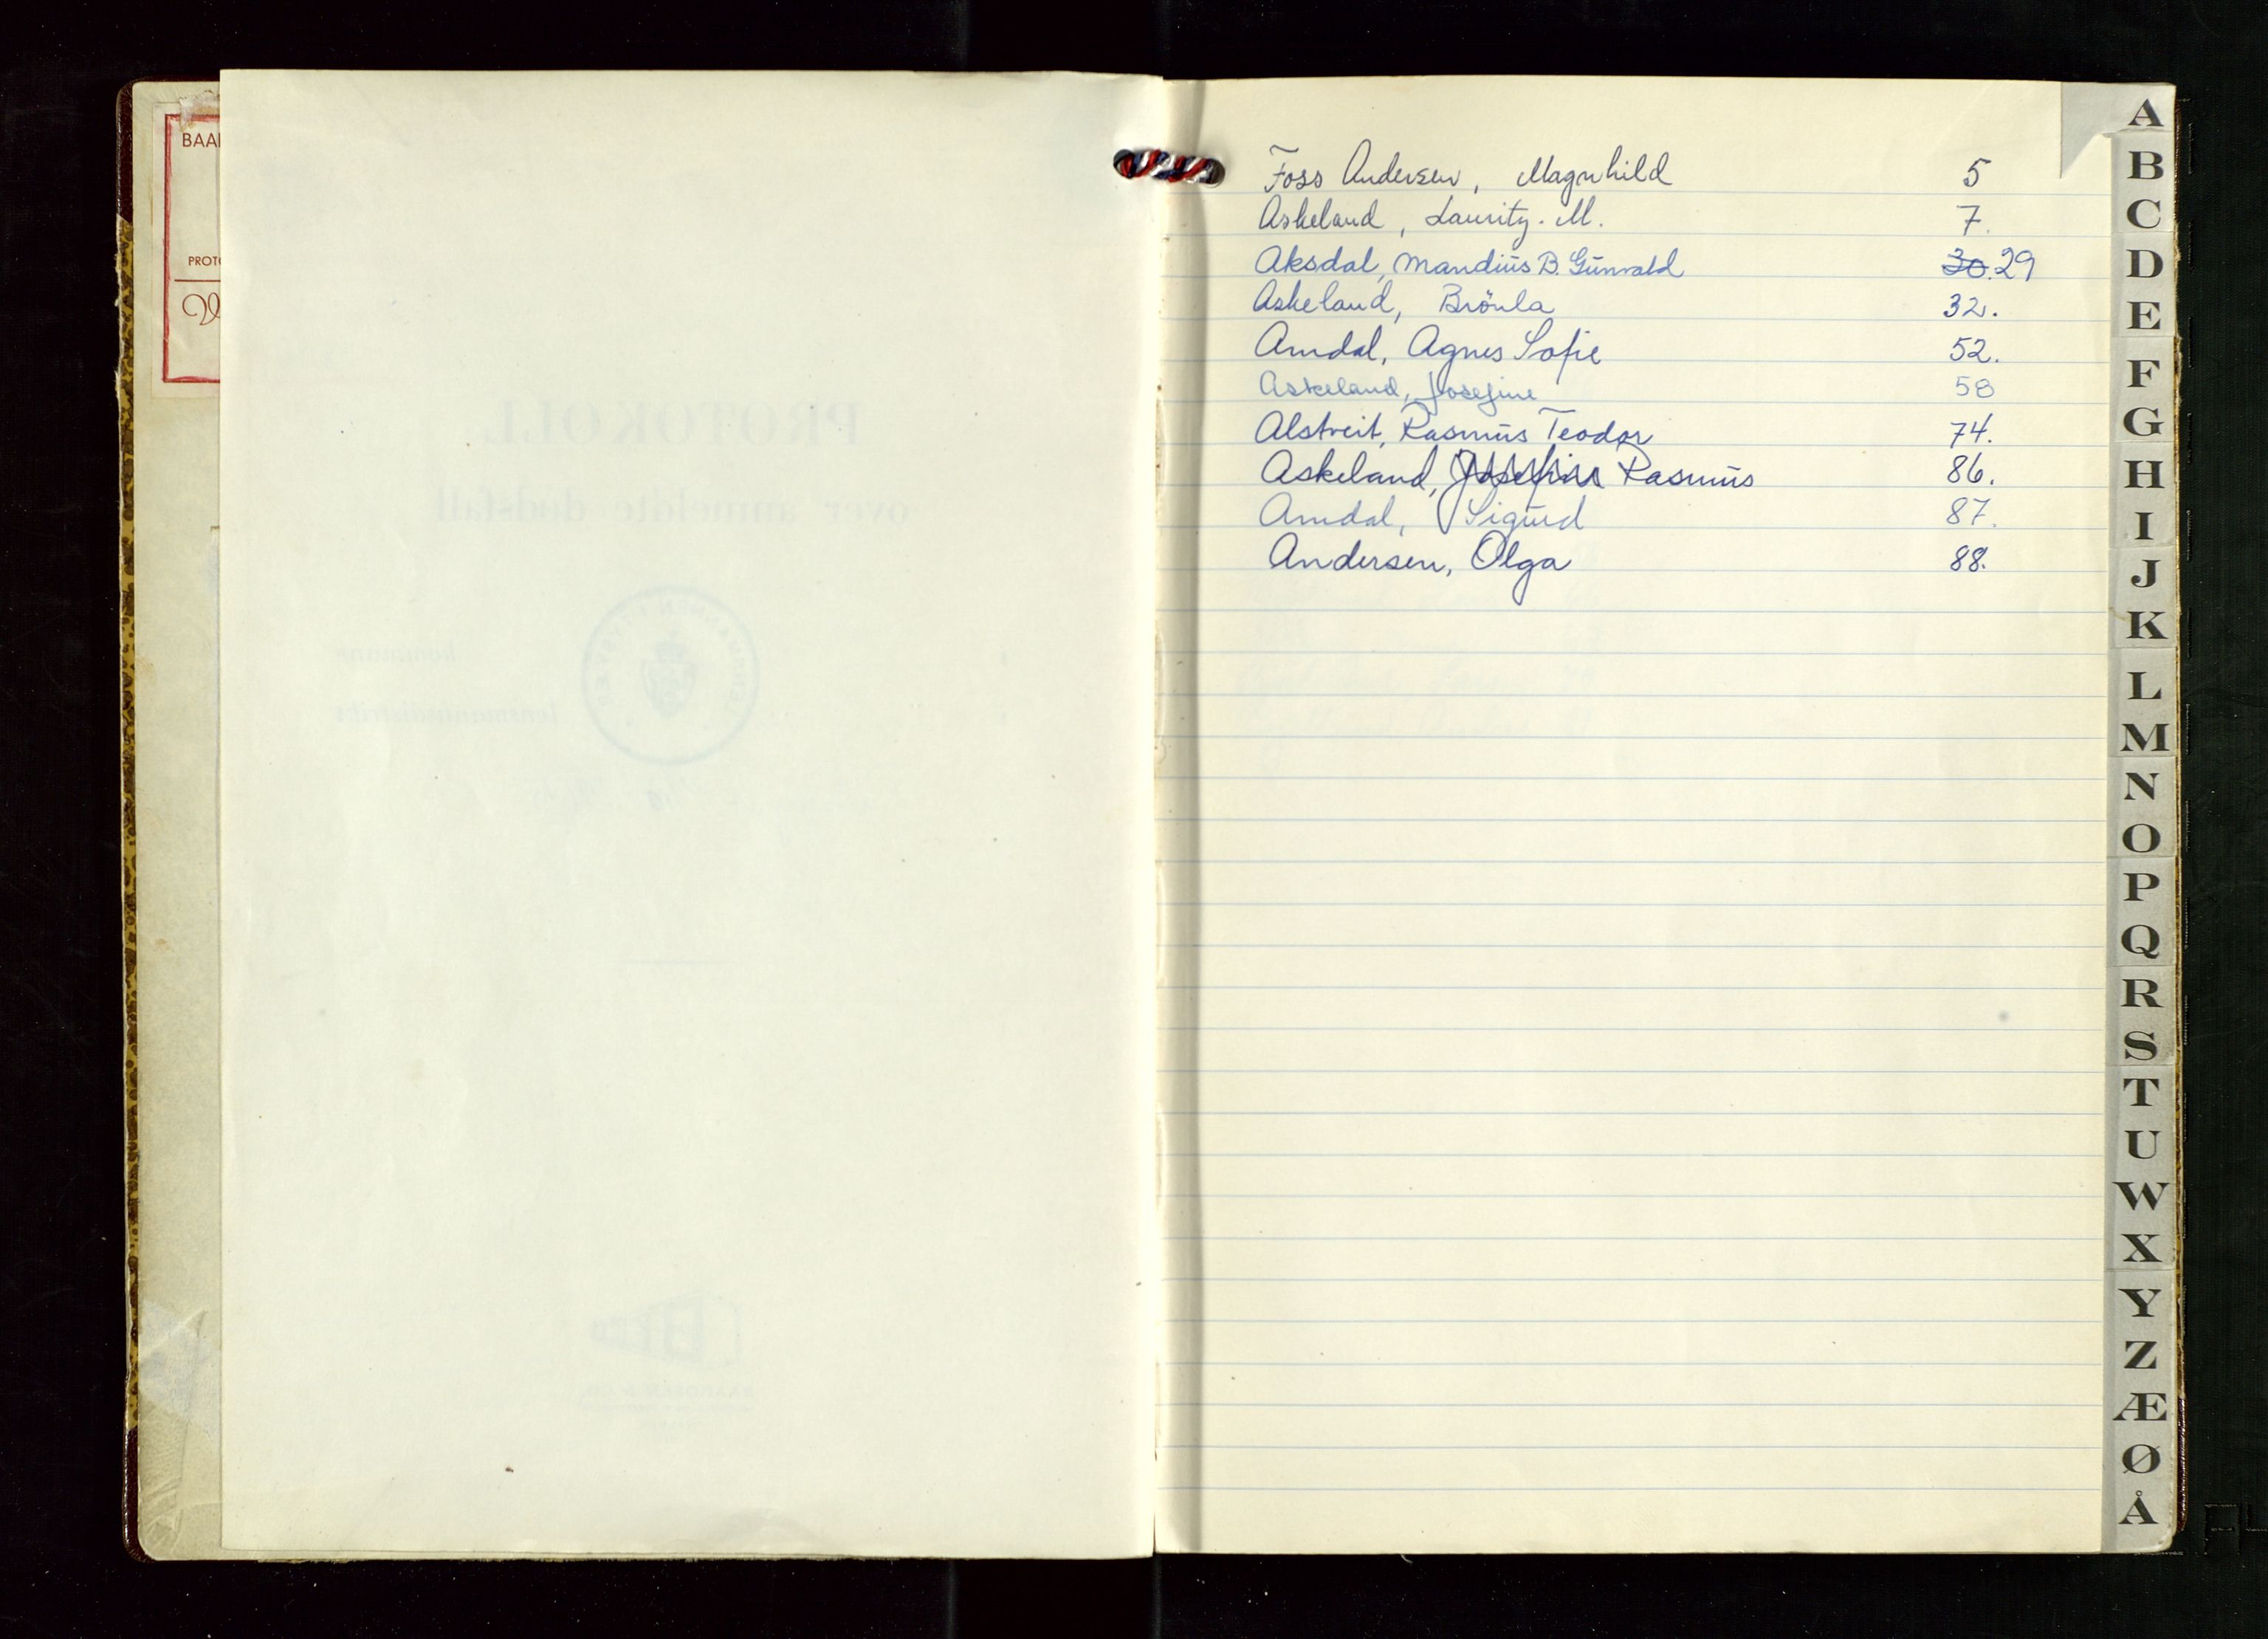 BAA
PROTO
PROTOKOLL
over anmeldte dødsfall
kommune
lensmannsdistrikt
Foss Andersen, Magnhild 5
Askeland, Lauritz. M. 7.
Aksdal, Mandius B. Gunvald 30. 29
Askeland, Brönla 32.
Amdal, Agnes Sofie 52.
Askeland, Josefine 58
Alstveit, Rasmus Teodor 74.
Askeland, Josefine Rasmus 86.
Amdal, Sigurd 87.
Andersen, Olga 88.
A
B
C
D
E
F
G
H
I
J
K
L
M
N
O
P
Q
R
S
T
U
W
X
Y
Z
Æ
Ø
Å